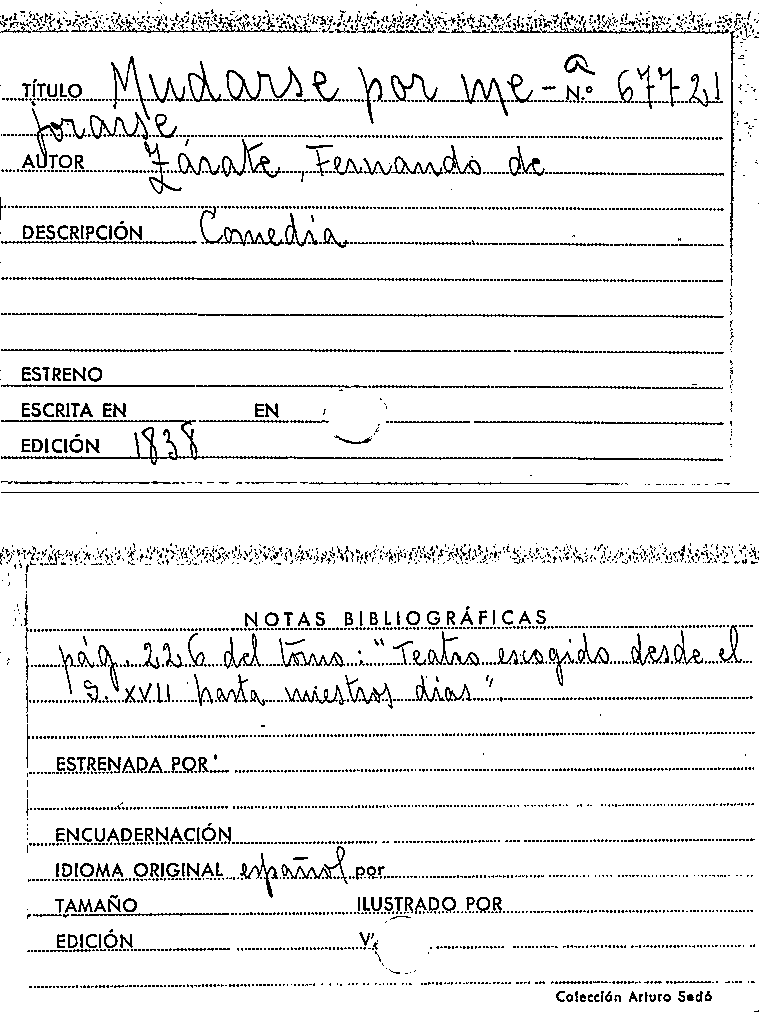 TÍTULO Mudarse por me- a N.º 67721
jorarse
AUTOR Zárate, Fernando de
DESCRIPCIÓN Comedia
ESTRENO
ESCRITA EN EN
EDICIÓN 1838
NOTAS BIBLIOGRÁFICAS
pág. 226 del tomo: "Teatro escogido desde el
S. XVII hasta nuestros días"
ESTRENADA POR
ENCUADERNACIÓN
IDIOMA ORIGINAL español por
TAMAÑO ILUSTRADO POR
EDICIÓN V.
Colección Arturo Sedó